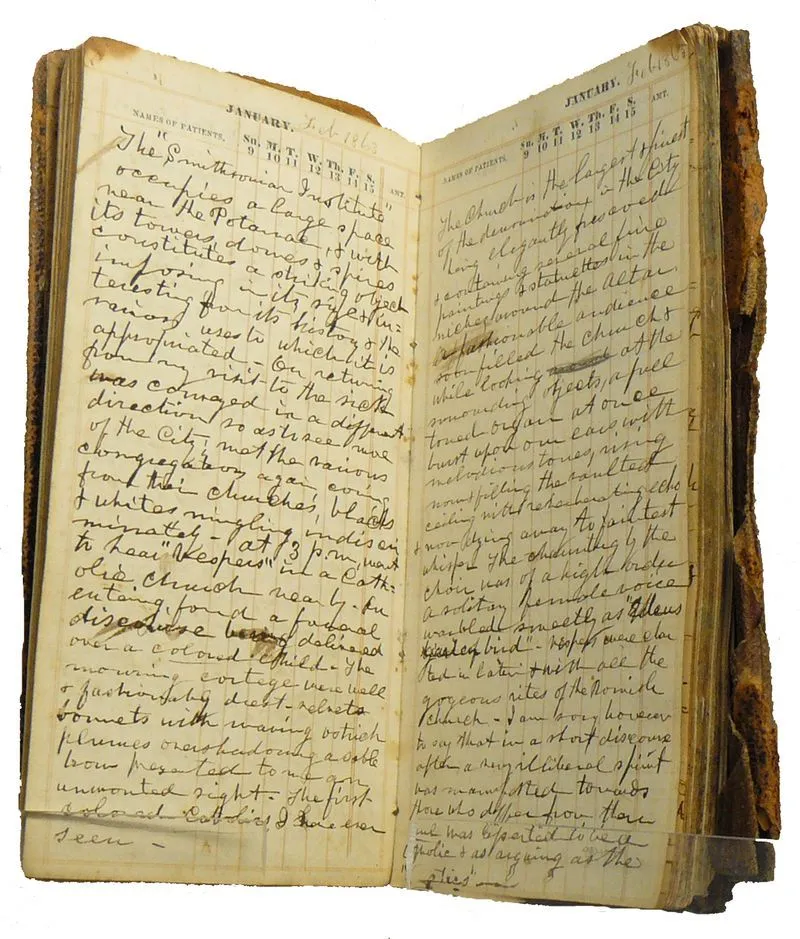 JANUARY. Feb 1863
NAMES OF PATIENTS. Su. M. T. W. Th. F. S. AMT.
9 10 11 12 13 14 15
The "Smithsonian Institute
occupies a large space
near the Potomac, & with
its towers, domes & spires
constitutes a striking object
imposing in its size & in-
teresting for its history & the
various uses to which it is
appropriated - On returning
from my visit to the sick
was conveyed in a different
direction so as to see more
of the City, met the various
congregations again coming
from their churches, blacks
& whites mingling indiscri
minately - at 3 p.m, went
to hear "Vespers" in a Cath-
olic church near by - On
entering, found a funeral
discourse being delivered
over a colored child - The
mourning cortege were well
& fashionably drest - velvets
bonnets with waving ostrich
plumes overshadowing a sable
brow presented to me an
unwonted sight - The first
colored Catholics I have ever
seen -
JANUARY. Feb 1863
NAMES OF PATIENTS. Su. M. T. W. Th. F. S. AMT.
9 10 11 12 13 14 15
The Church is the largest & finest
of the denomination in the City
being elegantly frescoed
& containing several fine
paintings & statuettes in the
niches around the Altar
a fashionable audience
soon filled the church &
while looking at the
surrounding objects, a full
toned organ at once
burst upon our ears with
melodious tones, rising
now & filling the vaulted
ceiling with reverberating echo
& now dying away to faintest
whisper. The chaunting of the
choir was of a high order
a solitary female voice
warbled sweetly as
bird" - Vespers were
in later & with all the
gorgeous rites of the Romish
Church - I am sorry however
to say that in a short discourse
after a very illiberal spirit
was manifested towards
those who differ from them
was asserted to be a
& as arguing as the